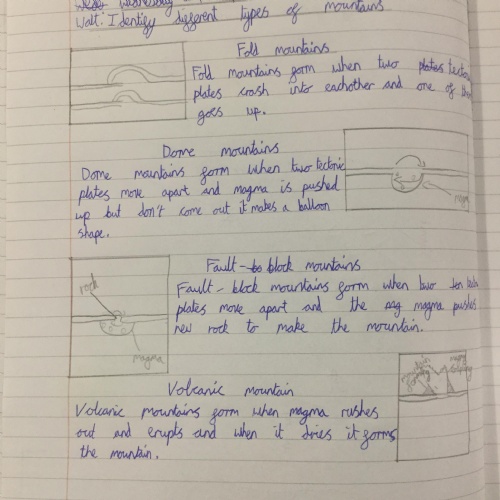 Wednesday
Walt: Identify different types of mountains
Fold mountains
Fold mountains form when two plates tectonic
plates crash into eachother and one of them
goes up.
Dome mountains
Dome mountains form when two tectonic
plates move apart and magma is pushed
up but don't come out it makes a balloon
shape.
magma
Fault- block mountains
Fault- block mountains form when two
plates move apart and the magma pushes
new rock to make the mountain.
rock
magma
Volcanic mountain
Volcanic mountains form when magma rushes
out and erupts and when it dries it forms
the mountain.